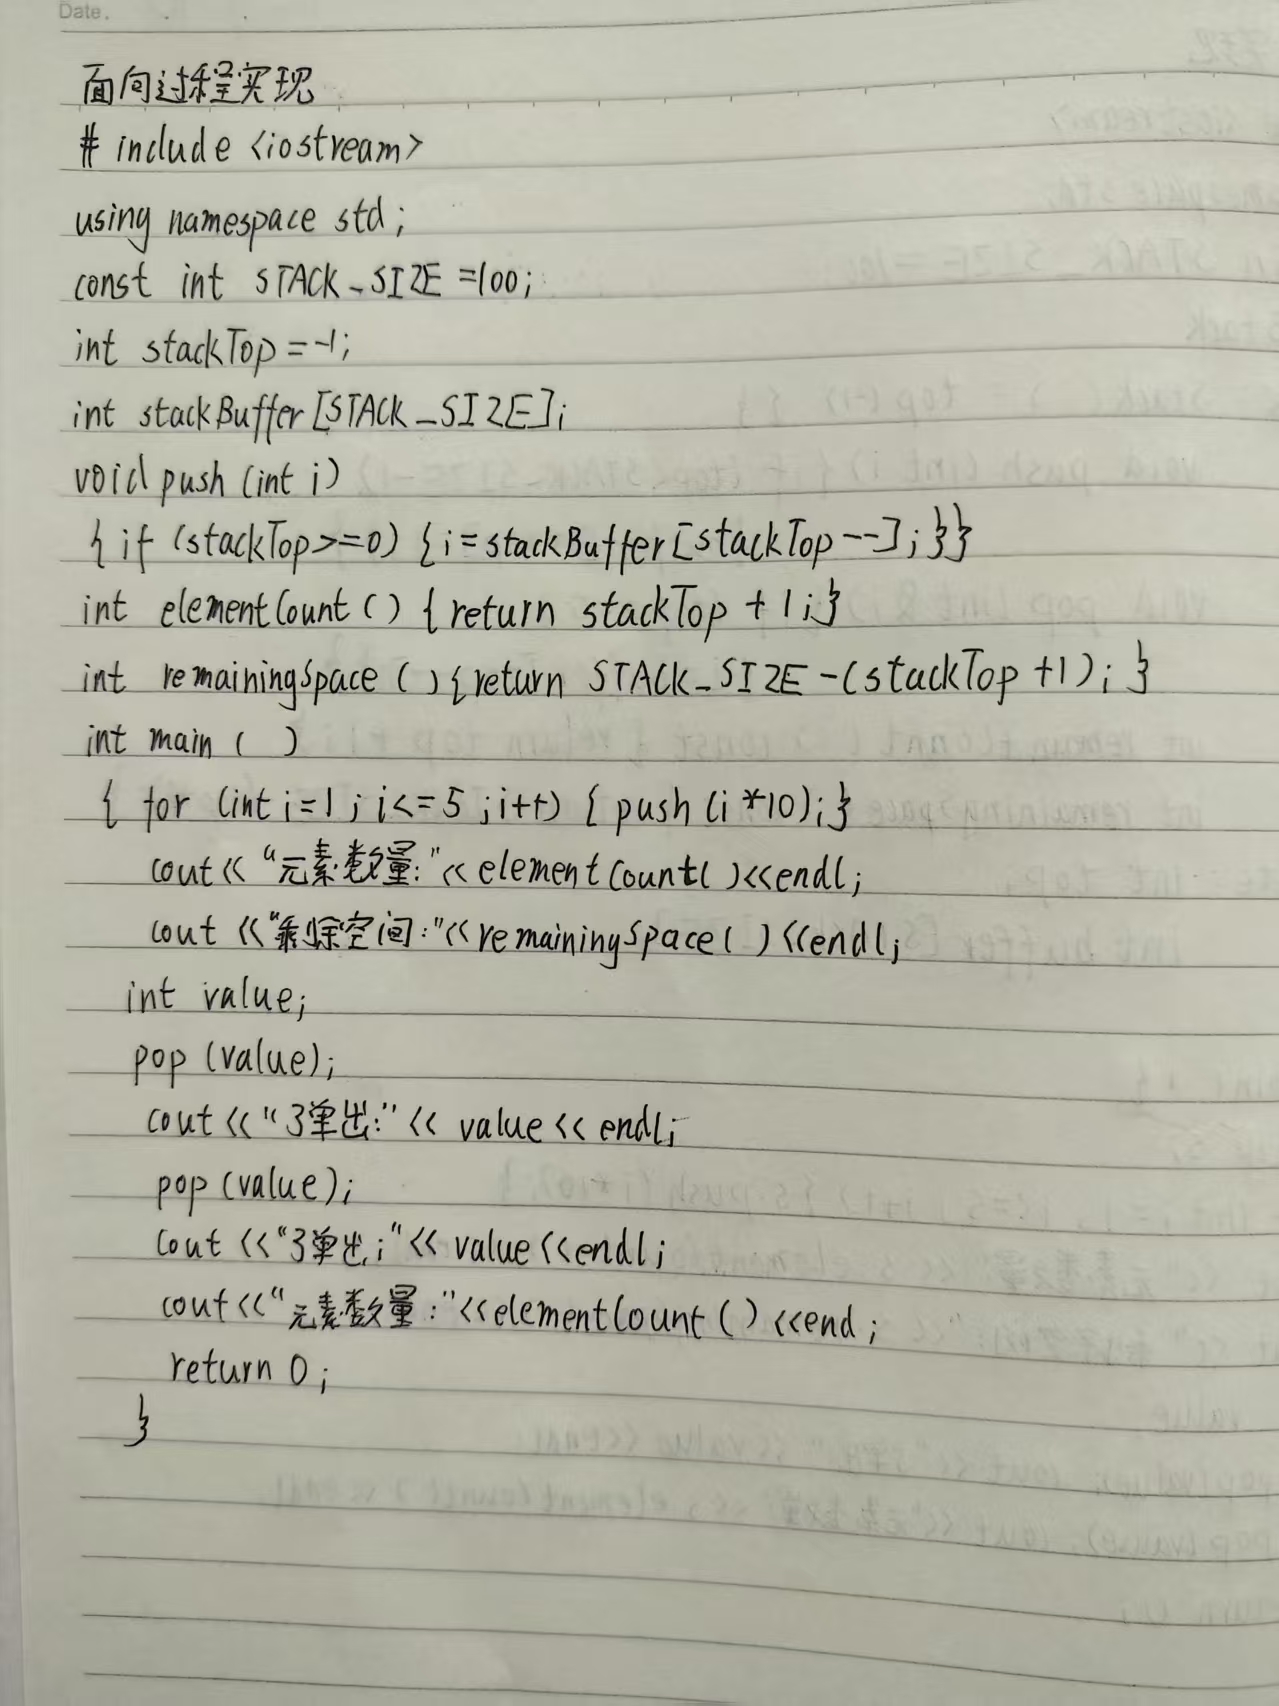 Date.
面向过程实现
# include <iostream>
using namespace std;
const int STACK_SIZE =100;
int stackTop=-1;
int stackBuffer[STACK_SIZE];
void push (int i)
{ if (stackTop>=0) {i=stackBuffer[stackTop--];}}
int elementCount () {return stackTop +1;}
int remainingSpace () {return STACK_SIZE -(stackTop +1); }
int main ( )
{ for (int i=1; i<=5 ;i++) { push (i*10);}
cout<< "元素数量:"<< elementCount( )<<endl;
cout <<"剩除空间:"<<remainingSpace( ) <<endl;
int value;
pop (value);
cout<<"3弹出:"<< value<< endl;
pop (value);
cout <<"3弹出;"<< value<<endl;
cout<<"元素数量:"<<elementCount () <<end;
return 0;
}